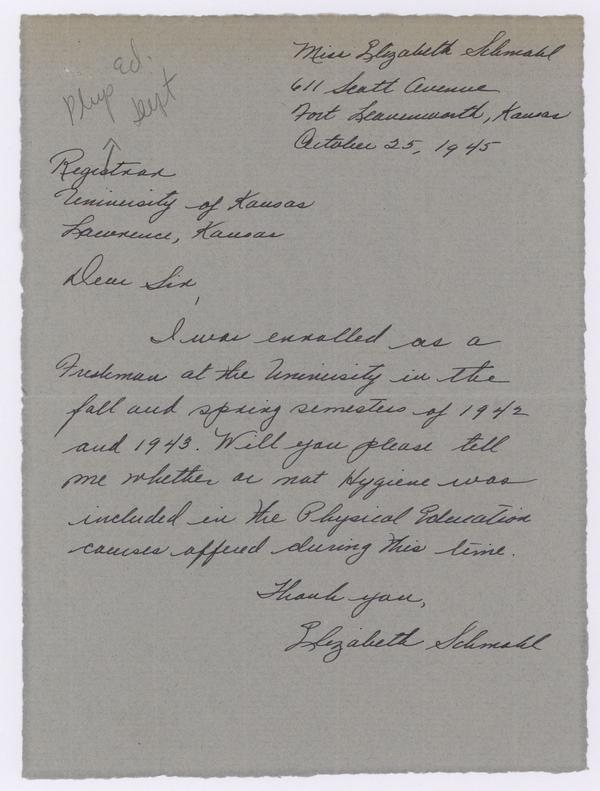 Phys Ed.
Dept
Miss Elizabeth Schmahl
611 Scott Avenue
Fort Leavenworth, Kansas
October 25, 1945
Registrar
University of Kansas
Lawrence, Kansas
Dear Sir,
I was enrolled as a
Freshman at the University in the
fall and spring semesters of 1942
and 1943. Will you please tell
me whether or not Hygiene was
included in the Physical Education
courses offered during this time.
Thank you,
Elizabeth Schmahl